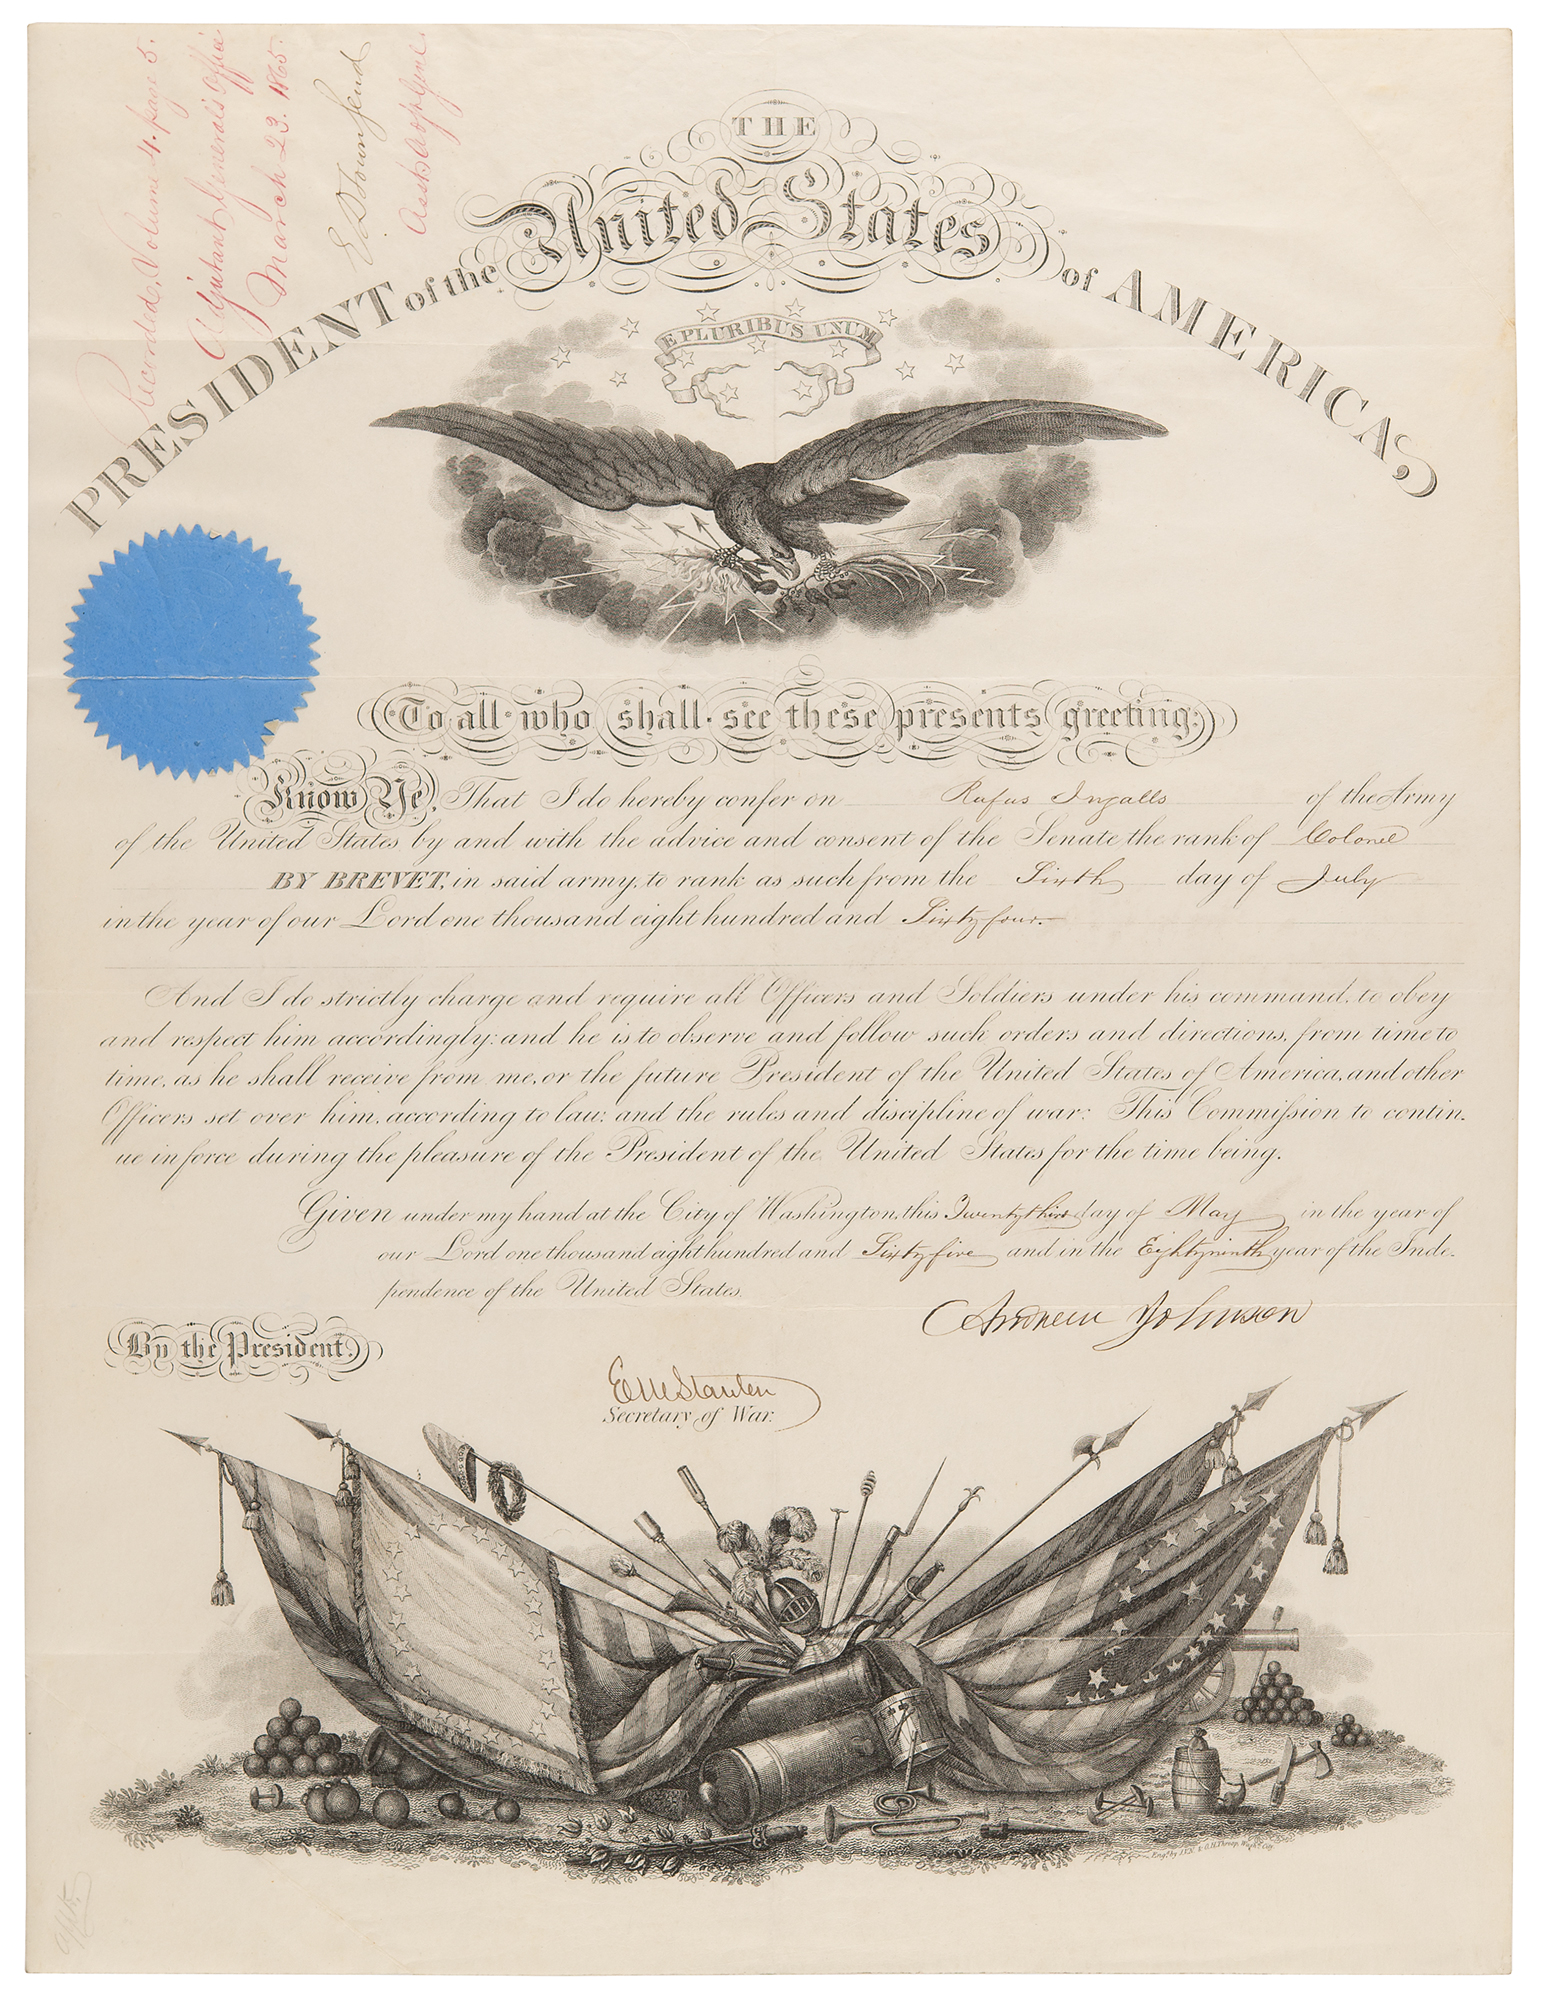 Recorded, Volume 4. page 5.
Adjutant General's Office
March 23. 1865.
E D Townsend
Asst Adjt Genl
THE
United States
PRESIDENT of the
of AMERICA,
E PLURIBUS UNUM
To all who shall see these presents greeting:
Know Ye, That I do hereby confer on Rufus Ingalls of the Army
of the United States by and with the advice and consent of the Senate the rank of Colonel
BY BREVET, in said army, to rank as such from the Sixth day of July
in the year of our Lord one thousand eight hundred and Sixty four.
And I do strictly charge and require all Officers and Soldiers under his command, to obey
and respect him accordingly: and he is to observe and follow such orders and directions, from time to
time, as he shall receive from me, or the future President of the United States of America, and other
Officers set over him, according to law: and the rules and discipline of war: This Commission to contin-
ue in force during the pleasure of the President of the United States for the time being.
Given under my hand at the City of Washington, this Twenty third day of May in the year of
our Lord one thousand eight hundred and Sixty five and in the Eighty ninth year of the Inde-
pendence of the United States.
Andrew Johnson
By the President.
E M Stanton
Secretary of War.